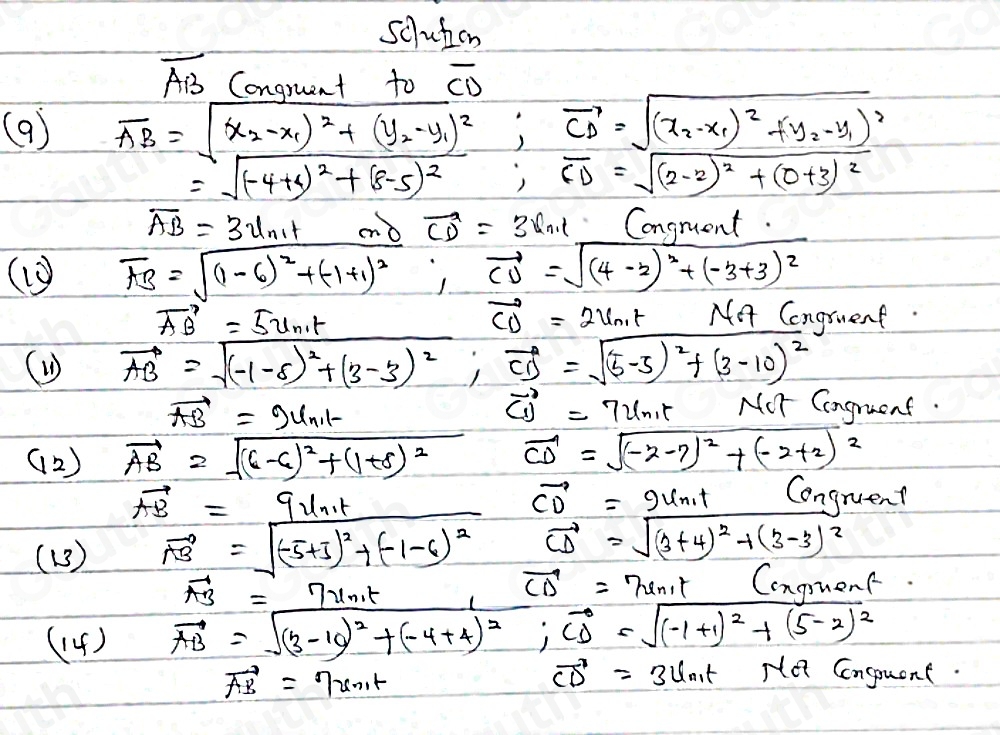 Solution
$\overline{AB}$ Congruent to $\overline{CD}$
(9) $\overline{AB} = \sqrt{(x_2-x_1)^2 + (y_2-y_1)^2}$ ; $\overrightarrow{CD} = \sqrt{(x_2-x_1)^2 + (y_2-y_1)^2}$
$= \sqrt{(-4+4)^2 + (8-5)^2}$ ; $\overline{CD} = \sqrt{(2-2)^2 + (0+3)^2}$
$\overline{AB}$ = 3Unit and $\overrightarrow{CD}$ = 3Unit Congruent .
(10) $\overline{AB} = \sqrt{(1-6)^2 + (-1+1)^2}$ ; $\overrightarrow{CD} = \sqrt{(4-2)^2 + (-3+3)^2}$
$\overrightarrow{AB}$ = 5Unit $\overrightarrow{CD}$ = 2Unit Not Congruent .
(11) $\overrightarrow{AB} = \sqrt{(-1-8)^2 + (3-3)^2}$ ; $\overrightarrow{CD} = \sqrt{(5-5)^2 + (3-10)^2}$
$\overrightarrow{AB}$ = 9Unit $\overrightarrow{CD}$ = 7Unit Not Congruent .
(12) $\overrightarrow{AB} = \sqrt{(6-6)^2 + (1+8)^2}$ $\overrightarrow{CD} = \sqrt{(-2-7)^2 + (-2+2)^2}$
$\overrightarrow{AB}$ = 9Unit $\overrightarrow{CD}$ = 9Unit Congruent
(13) $\overrightarrow{AB} = \sqrt{(-5+5)^2 + (-1-6)^2}$ $\overrightarrow{CD} = \sqrt{(3+4)^2 + (3-3)^2}$
$\overrightarrow{AB}$ = 7Unit , $\overrightarrow{CD}$ = 7Unit Congruent .
(14) $\overrightarrow{AB} = \sqrt{(3-10)^2 + (-4+4)^2}$ ; $\overrightarrow{CD} = \sqrt{(-1+1)^2 + (5-2)^2}$
$\overrightarrow{AB}$ = 7Unit $\overrightarrow{CD}$ = 3Unit Not Congruent .